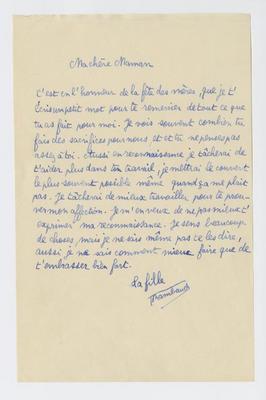 Ma chère Maman
C'est en l'honneur de la fête des mères, que je t'
écris un petit mot pour te remercier de tout ce que
tu as fait pour moi. Je vois souvent combien tu
fais des sacrifices pour nous, et et tu ne penses pas
assez à toi. Aussi en reconnaissance je tâcherai de
t'aider plus dans ton travail, je mettrai le couvert
le plus souvent possible même quand ça me plaît
pas. Je tâcherai de mieux travailler pour te prou-
ver mon affection. Je m'en veux de ne pas mieux t'
exprimer ma reconnaissance. Je sens beaucoup
de choses, mais je ne sais même pas te les dire,
aussi je ne sais comment mieux faire que de
t'embrasser bien fort.
La fille